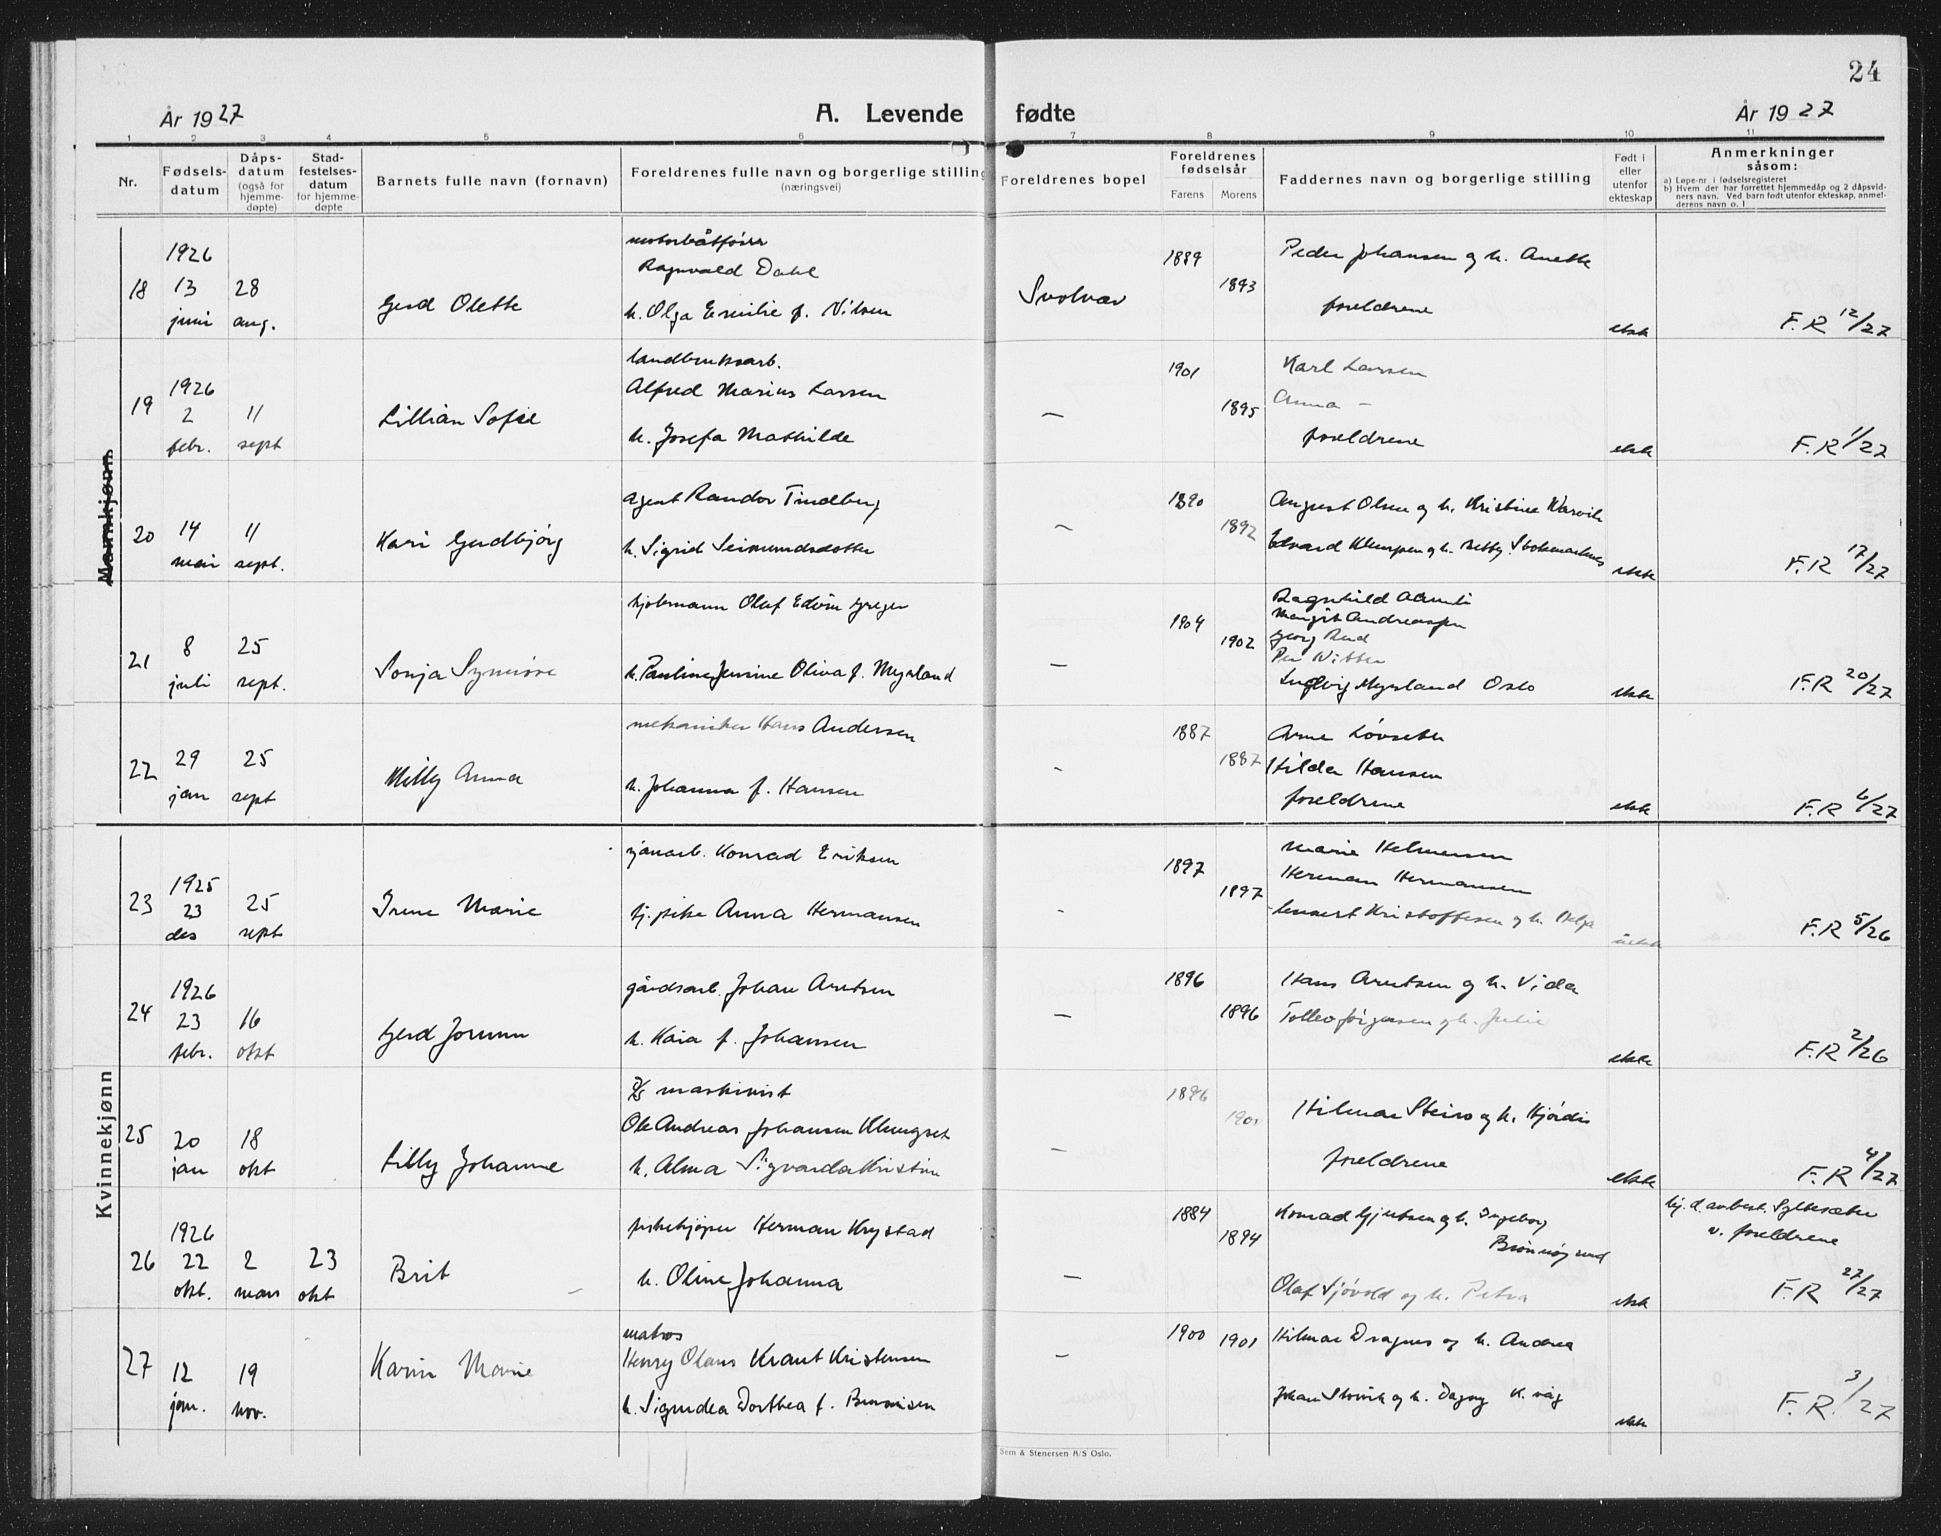 24
År 1927
A. Levende fødte
År 1927
1 2 3 4 5 6 7 8 9 10 11
Nr.
Fødsels-
datum
Dåps-
datum
(også for
hjemme-
døpte)
Stad-
festelses-
datum
for hjemme-
døpte
Barnets fulle navn (fornavn)
Foreldrenes fulle navn og borgerlige stilling
(næringsvei)
Foreldrenes bopel
Foreldrenes
fødselsår
Farens Morens
Faddernes navn og borgerlige stilling
Født i
eller
utenfor
ekteskap
Anmerkninger
såsom:
a) Løpe-nr i fødselsregisteret
b) Hvem der har forrettet hjemmedåp og 2 dåpsvid-
ners navn. Ved barn født utenfor ekteskap, anmel-
derens navn o. l
Mannkjønn
18
1926
13
juni
28
aug.
Gerd Olette
motorbåtfører
Ragnvald Dahl
h. Olga Emilie f. Nilsen
Svolvær
1889
1893
Peder Johansen og h. Anette
foreldrene
ekte
F.R 12/27
19
1926
2
febr.
11
sept
Lillian Sofie
landbruksarb.
Alfred Marius Larsen
h. Josefa Mathilde
—
1901
1895
Karl Larsen
Anna —
foreldrene
ekte
F.R 1/27
20
14
mai
11
sept.
Kari Gerdbjörg
agent Randor Tindberg
h. Sigrid
—
1890
1892
August Olsen og h. Kristine
ekte
F.R 17/27
21
8
juli
25
sept.
Sonja Synnöve
Olaf Edvin
h. Pauline Jensine Oliva f. Myrland
—
1904
1902
Ragnhild
Margit Andreassen
Georg
Per
Ludvig Myrland Oslo
ekte
F.R 20/27
22
29
jan
25
sept
Milly Anna
mekaniker Hans Andersen
h. Johanna f. Hansen
-
1887
1887
Arne Løvseter
Hilda Hansen
foreldrene
ekte
F.R 6/27
Kvinnekjønn
23
1925
23
des
25
sept
Irene Marie
Konrad Eriksen
Anna Hermansen
-
1897
1897
Marie Helmersen
Herman Hermansen
Lennert Kristoffersen og h. Helga
uekte
F.R 5/26
24
1926
23
febr.
16
okt
Gerd Jorunn
gårdsarb. Johan Arntsen
h. Kaia f. Johansen
—
1896
1896
Hans Arntsen og h. Vida
Tollev Jörgensen og h. Julie
ekte
F.R 2/26
25
20
jan
18
okt
Lilly Johanne
maskinist
Ole Andreas Johansen Klungset
h. Alma Sigvarda Kristine
-
1896
1901
Hilmar Steiro og h. Hjördis
foreldrene
ekte
F.R 4/27
26
1926
22
okt.
2
mars
23
okt
Brit
fiskekjøper Herman Krystad
h. Oline Johanna
—
1884
1894
Konrad Gjertsen og h. Ingeborg
Brønnøysund
Olaf Sjövold og h. Petra
ekte
hj. d. av best. Syltesæter
v. foreldrene
F.R 27/27
27
12
jan.
19
nov.
Karin Marie
matros
Henry Olaus Kraut Kristensen
h. Signdea Dorthea f. Benonisen
—
1900 1901
Hilmar Dragnes og h. Andrea
Johan Storvik og h. Dagny K. våg
ekte
F.R. 3/27
Sem & Stenersen A/S Oslo.